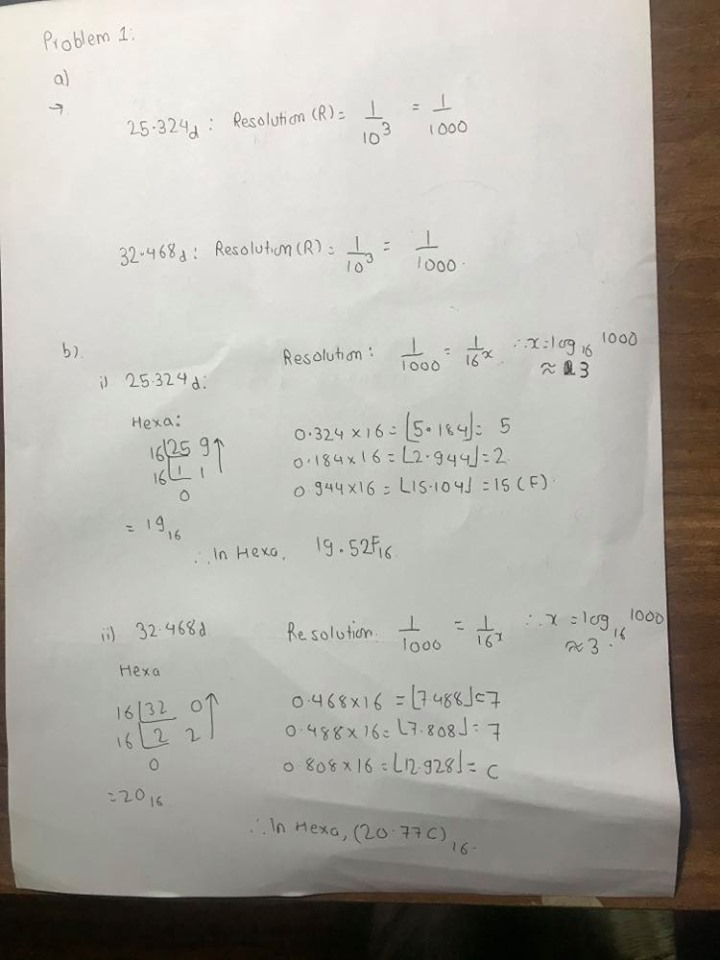 Problem 1:
a)
→
25.324d : Resolution (R) = 1/10^3 = 1/1000
32.468d : Resolution (R) = 1/10^3 = 1/1000.
b).
Resolution : 1/1000 = 1/16^x ∴ x = log16 1000
≈ 3
i) 25.324d:
Hexa:
16 | 25 9 ↑
16 | 1 1
0
= 19₁₆
0.324 × 16 = ⌊5.184⌋ = 5
0.184 × 16 = ⌊2.944⌋ = 2
0.944 × 16 = ⌊15.104⌋ = 15 (F)
∴ In Hexa, 19.52F₁₆
ii) 32.468d
Resolution. 1/1000 = 1/16^x ∴ x = log16 1000
≈ 3.
Hexa
16 | 32 0 ↑
16 | 2 2
0
= 20₁₆
0.468 × 16 = ⌊7.488⌋ = 7
0.488 × 16 = ⌊7.808⌋ = 7
0.808 × 16 = ⌊12.928⌋ = C
∴ In Hexa, (20.77C)₁₆.